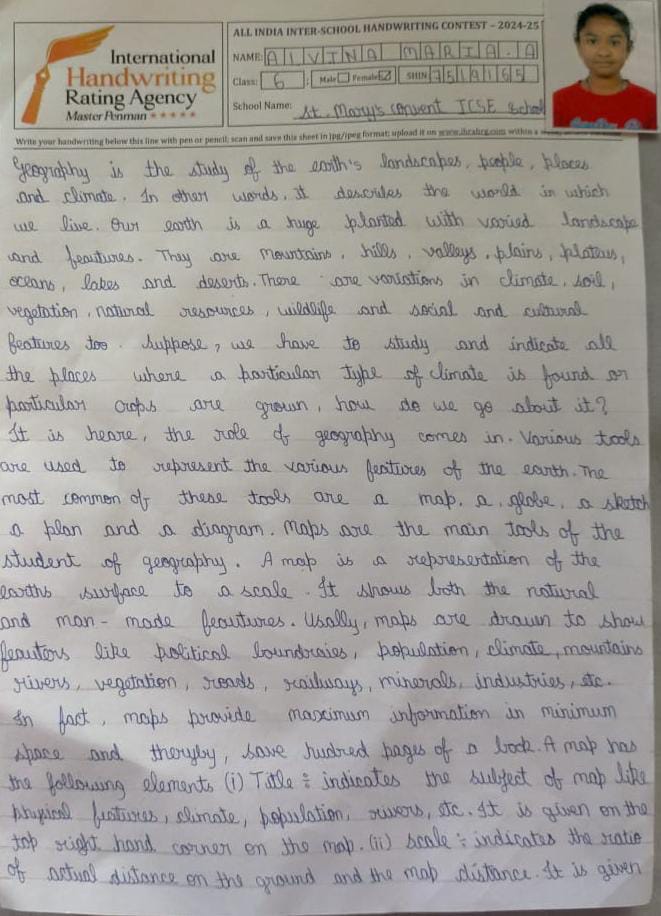 ALL INDIA INTER-SCHOOL HANDWRITING CONTEST – 2024-25
International
Handwriting
Rating Agency
Master Penman
NAME: ALVINA MARIA. A
Class: 6 Male Female SHIN: 7519165
School Name: St. Mary's convent ICSE School
Write your handwriting below this line with pen or pencil; scan and save this sheet in jpg/jpeg format; upload it on www.ihrahrg.com within a
Geography is the study of the earth's landscapes, people, places
and climate. In other words, it describes the world in which
we live. Our earth is a huge planted with varied landscape
and feautures. They are Mountains, hills, valleys, plains, plateus,
oceans, lakes and deserts. There are variations in climate, soil,
vegetation, natural resources, wildlife and social and cultural
features too. Suppose, we have to study and indicate all
the places where a particular type of climate is found or
particular crops are grown, how do we go about it?
It is heare, the role of geography comes in. Various tools
are used to represent the various features of the earth. The
most common of these tools are a map, a globe, a sketch
a plan and a diagram. Maps are the main tools of the
student of geography. A map is a representation of the
earths surface to a scale. It shows both the natural
and man-made feautures. Usally, maps are drawn to show
feautors like political boundraies, population, climate, mountains
rivers, vegetation, roads, railways, minerals, industries, etc.
In fact, maps provide maximum information in minimum
space and theryby, save hudred pages of a book. A map has
the following elements (i) Title : indicates the subject of map like
physical features, climate, population, rivers, etc. It is given on the
top right hand corner on the map. (ii) scale : indicates the ratio
of actual distance on the ground and the map distance. It is given